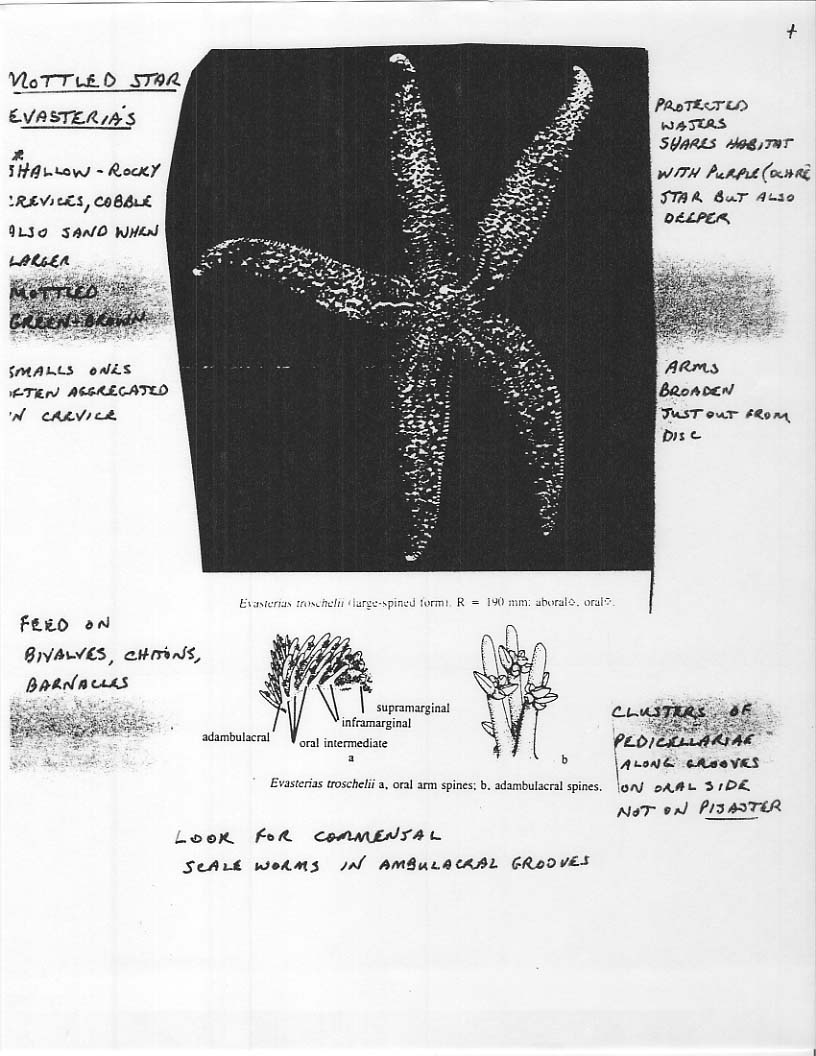 +
MOTTLED STAR
EVASTERIAS
*
SHALLOW - ROCKY
CREVICES, COBBLE
ALSO SAND WHEN
LARGER
MOTTLED
GREEN + BROWN
SMALLS ONES
OFTEN AGGREGATED
IN CREVICE
PROTECTED
WATERS
SHARES HABITAT
WITH PURPLE (OCHRE
STAR BUT ALSO
DEEPER
ARMS
BROADEN
JUST OUT FROM
DISC
Evasterias troschelii (large-spined form), R = 190 mm: aboral◊, oral◊.
FEED ON
BIVALVES, CHITONS,
BARNACLES
supramarginal
inframarginal
adambulacral
oral intermediate
a
b
Evasterias troschelii a, oral arm spines; b, adambulacral spines.
CLUSTERS OF
PEDICELLARIAE
ALONG GROOVES
ON ORAL SIDE
NOT ON PISASTER
LOOK FOR COMMENSAL
SCALE WORMS IN AMBULACRAL GROOVES